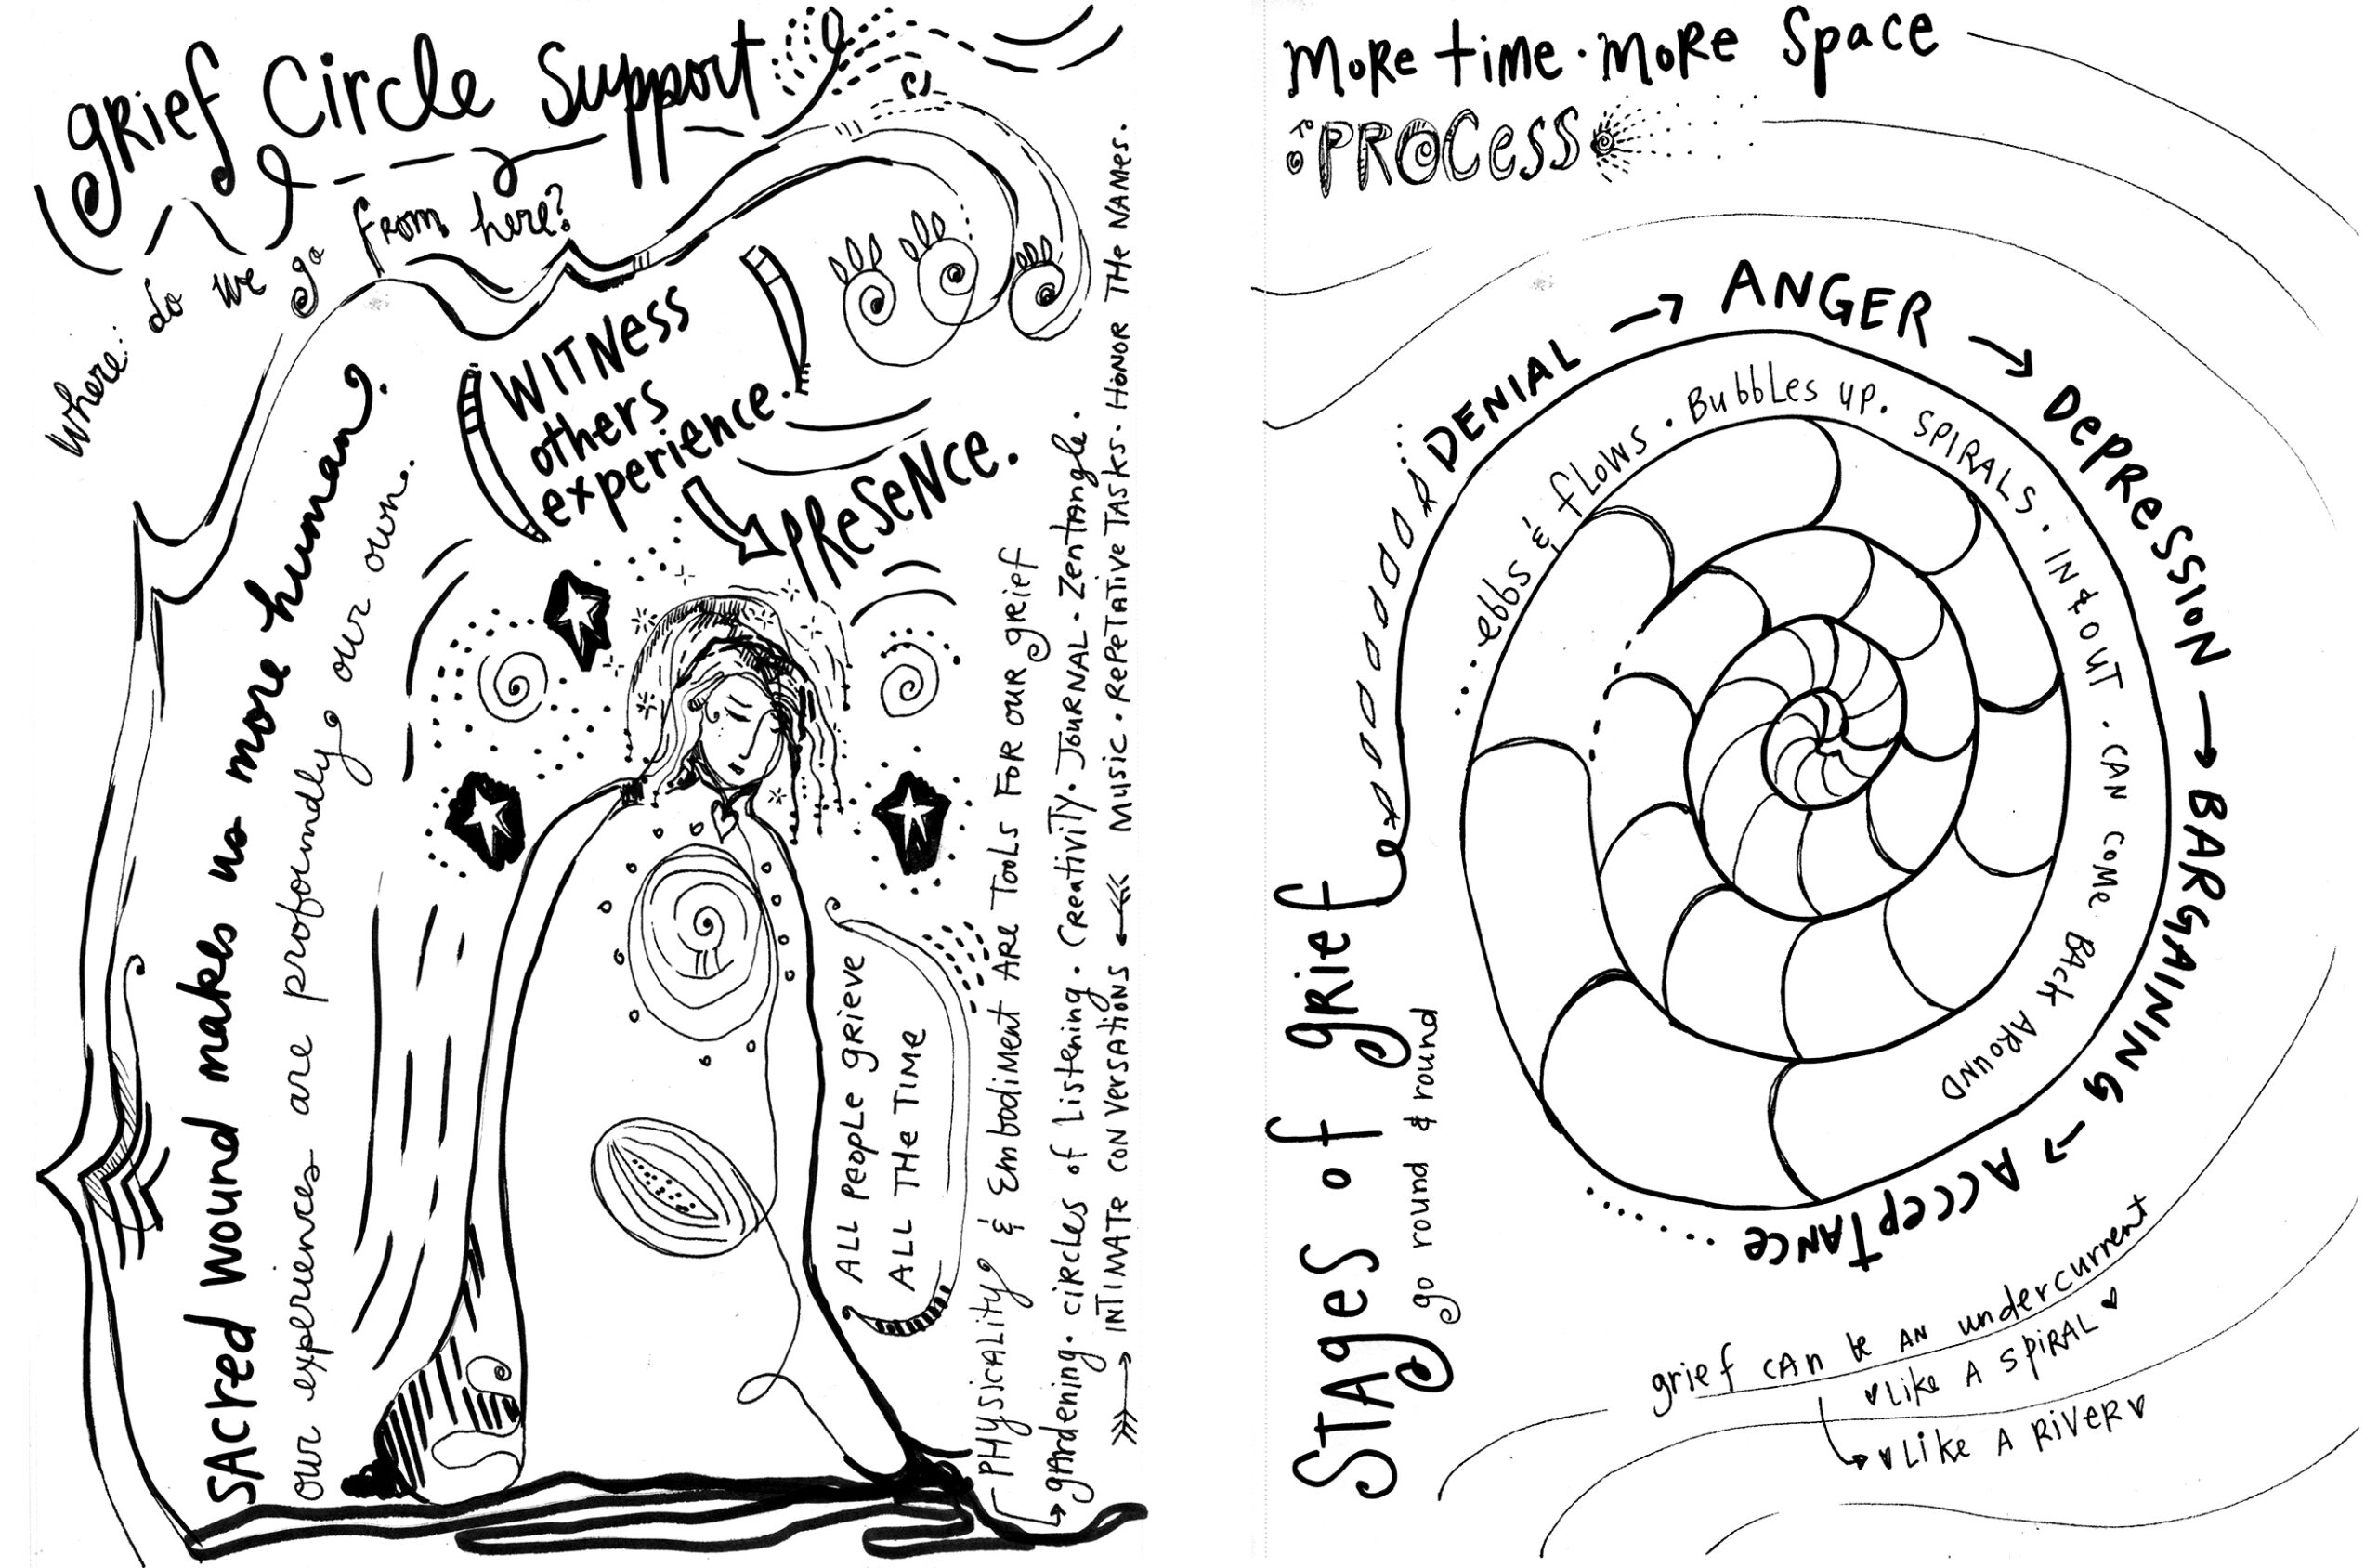 gRief Circle Support
Where do we go
from here?
WITNess
others
experience.
PReSeNce.
SAcred Wound makes us more human?
our experiences are profoundly our own.
ALL PeopLe GRIeVe
ALL THe TIMe
PHYSICALITY & EmbodiMeNT ARe TooLs FOR OUR gRief
gARdening. ciRcLes of Listening. CReativiTy. JOURNAL. ZenTANgle.
INTIMATe CONVeRSATIONS
MUSIC. RePeTATIVe TASKS. HONOR THe NAMes.
MoRe time. MoRe Space
TO PROCeSS
STAges of gRief
go round & round
DENIAL → ANGER → DePReSSioN → BARGAINING → AccepTANce
...ebbs & fLows. BubbLes up. SPIRALS. IN & OUT. CAN CoMe BAck AROUND
grief cAn be AN undercurrent
Like A SpiRAL
Like A RiVeR